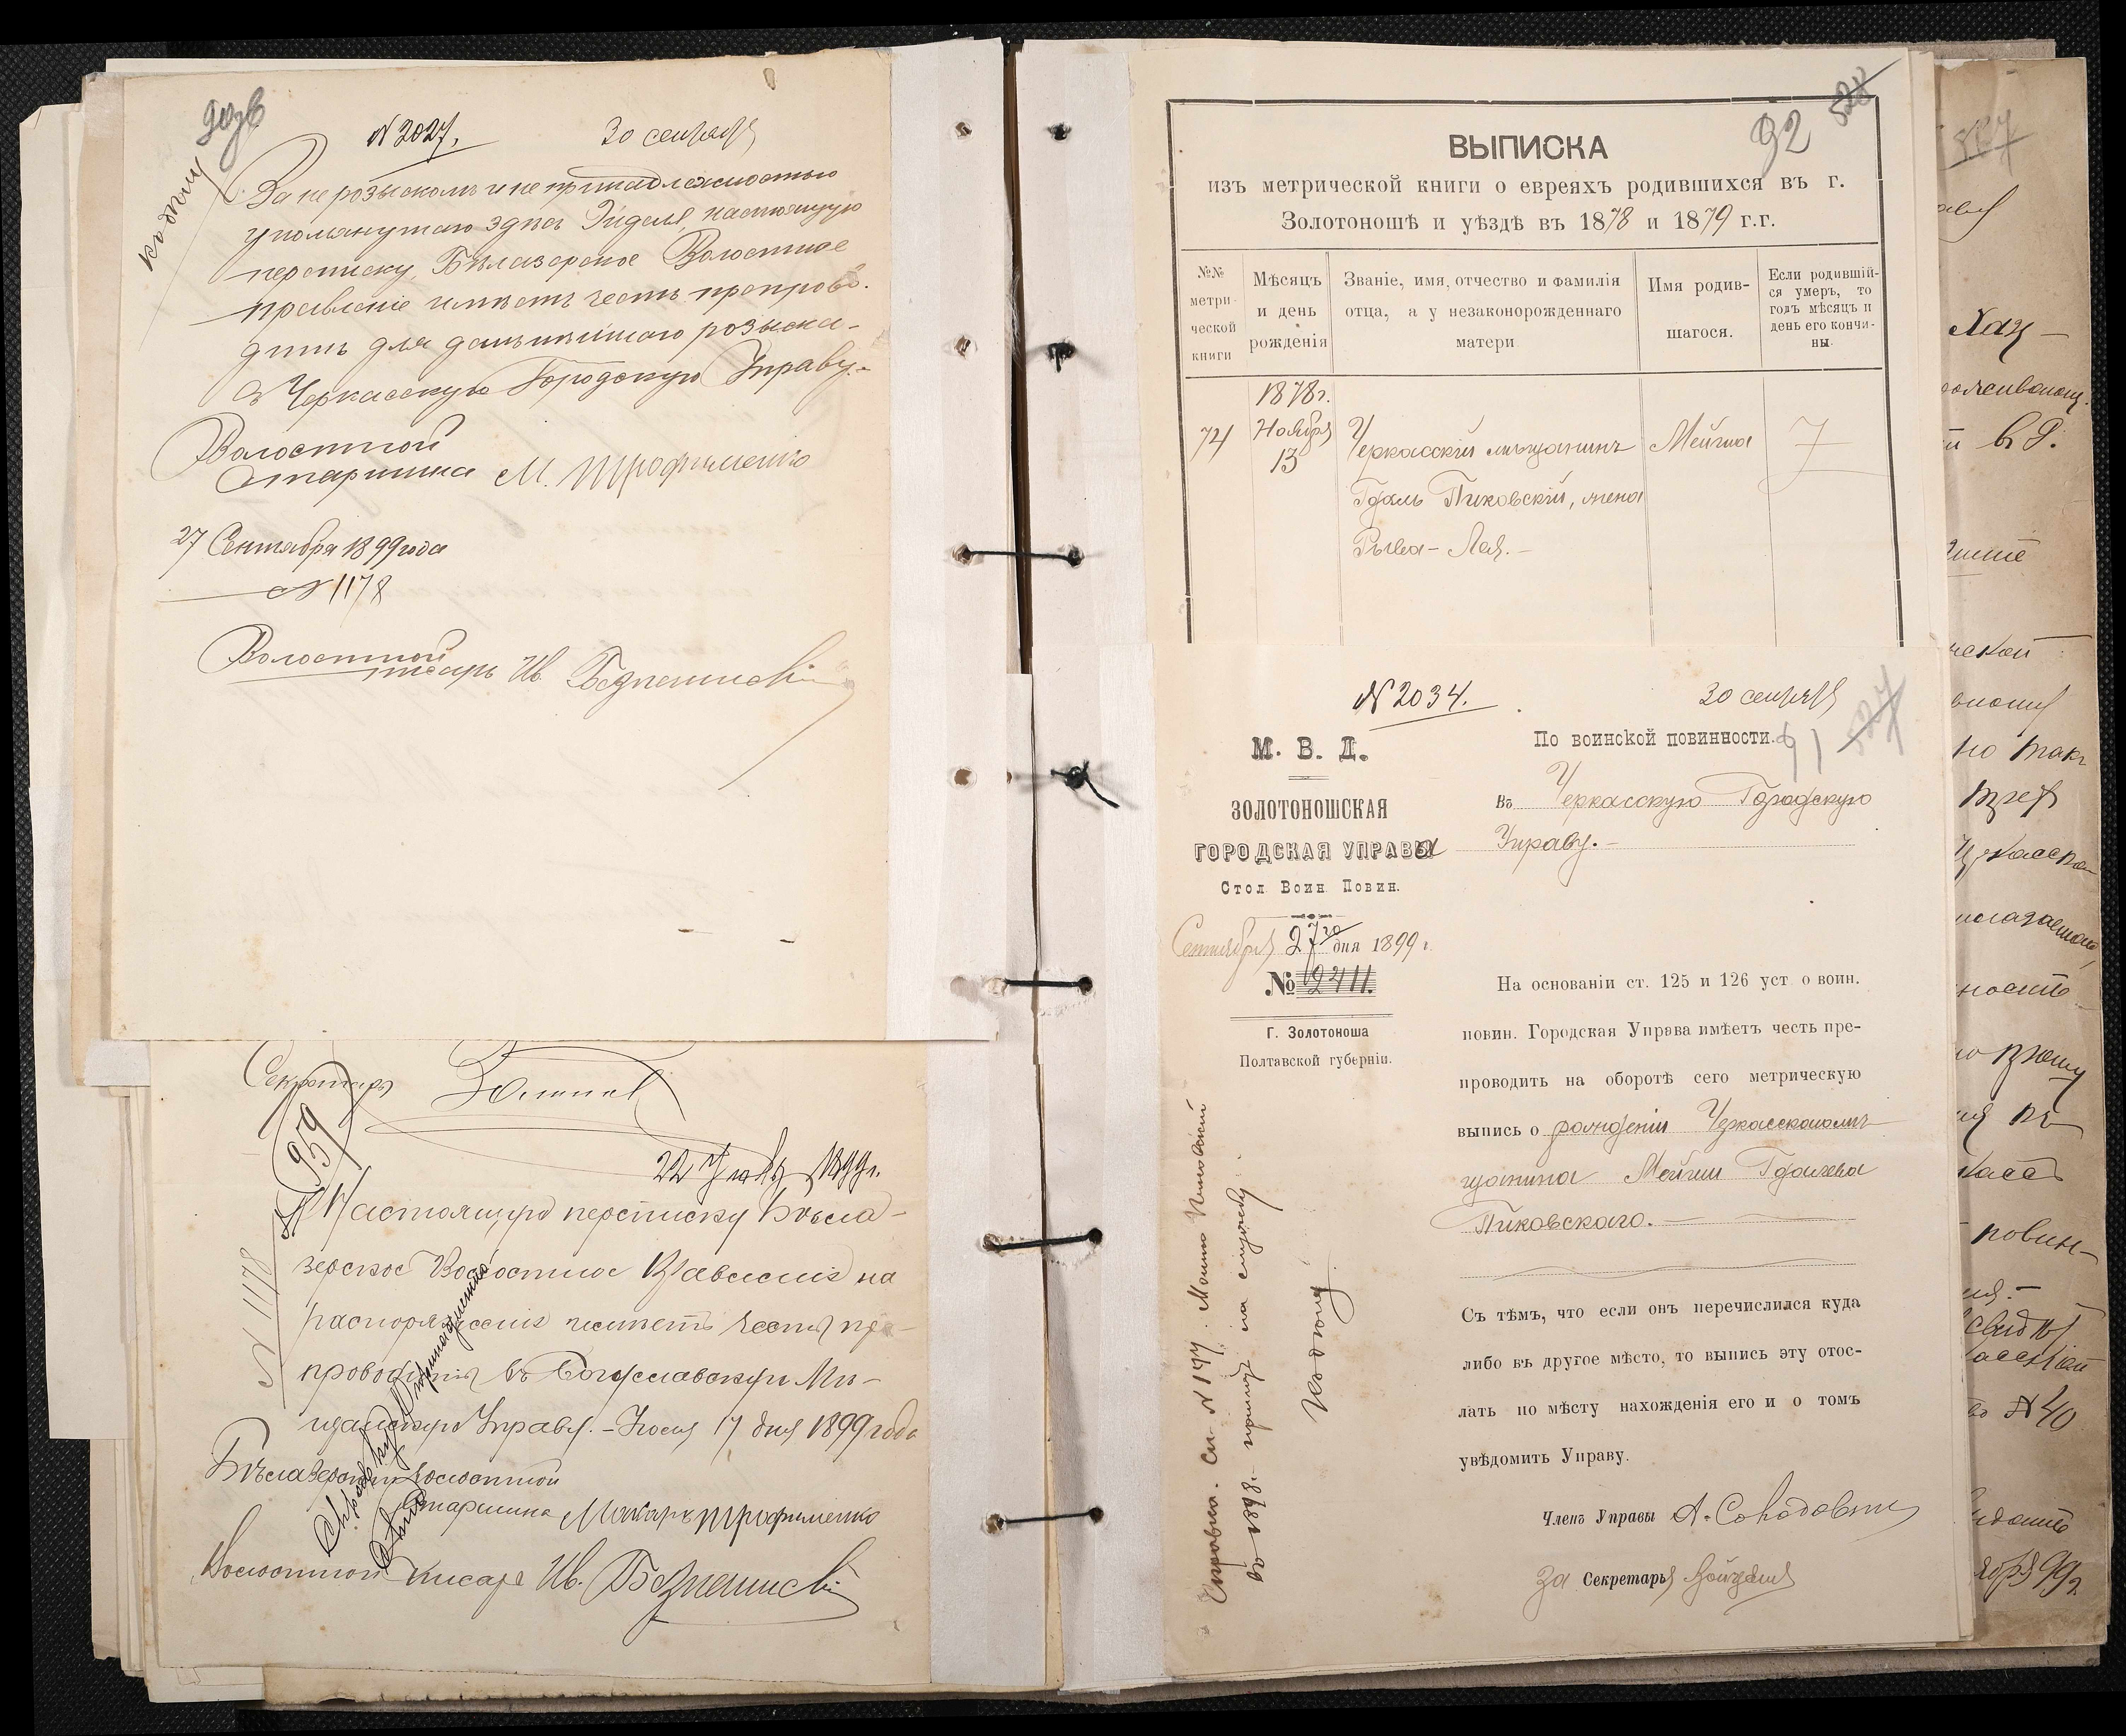 90 об
№ 2027. 30 сентября
За не розыскомъ и не принадлежностью
упомянутаго здѣсь Эйделя, настоящую
переписку, Бѣлазерское Волостное
правленіе имѣетъ честь препрово-
дить для дальнѣйшаго розыска-
въ Черкасскую Городскую Управу.-
Волостной
Старшина М. Трофименко
27 Сентября 1899 года
№ 1178
Волостной
писарь Ив.
Секретарь
№ 959
22 1899 г.
Настоящую переписку Бѣла-
зерское Волостное Правленіе на
распоряженіе имѣетъ честь пре-
проводить въ Богуславскую Мѣ-
щанскую Управу. - Іюля 17 дня 1899 года
Бѣлазерскій Волостной
Старшина Макаръ Трофименко
Волостной писарь Ив.
№ 1178
92 528
ВЫПИСКА
изъ метрической книги о евреяхъ родившихся въ г.
Золотоношѣ и уѣздѣ въ 1878 и 1879 г.г.
№№ метри- ческой книги
Мѣсяцъ и день рожденія
Званіе, имя, отчество и фамилія отца, а у незаконорожденнаго матери
Имя родив- шагося.
Если родившій- ся умеръ, то годъ мѣсяцъ и день его кончи- ны.
1878 г.
74 Ноября 13 Черкасскій мѣщанинъ Мейша
Гдаль Пиковскій, жена
Рыва-Лая.-
№ 2034. 30 сентября
М. В. Д.
По воинской повинности.
91 527
ЗОЛОТОНОШСКАЯ
ГОРОДСКАЯ УПРАВА
Стол. Воин. Повин.
Въ Черкасскую Городскую
Управу.-
Сентября 27 дня 1899 г.
№ 2411.
Г. Золотоноша
Полтавской губерніи.
На основаніи ст. 125 и 126 уст. о воин.
повин. Городская Управа имѣетъ честь пре-
проводить на оборотѣ сего метрическую
выпись о рожденіи Черкасскаго мѣ-
щанина Мейши Гдалева
Пиковскаго.-
Съ тѣмъ, что если онъ перечислился куда
либо въ другое мѣсто, то выпись эту отос-
лать по мѣсту нахожденія его и о томъ
увѣдомить Управу.
Членъ Управы А.
За Секретаря
Справка. Сп. № 177. Пиковскій
въ 1898 г. принятъ на службу.
Къ дѣлу
№ 40
99 г.